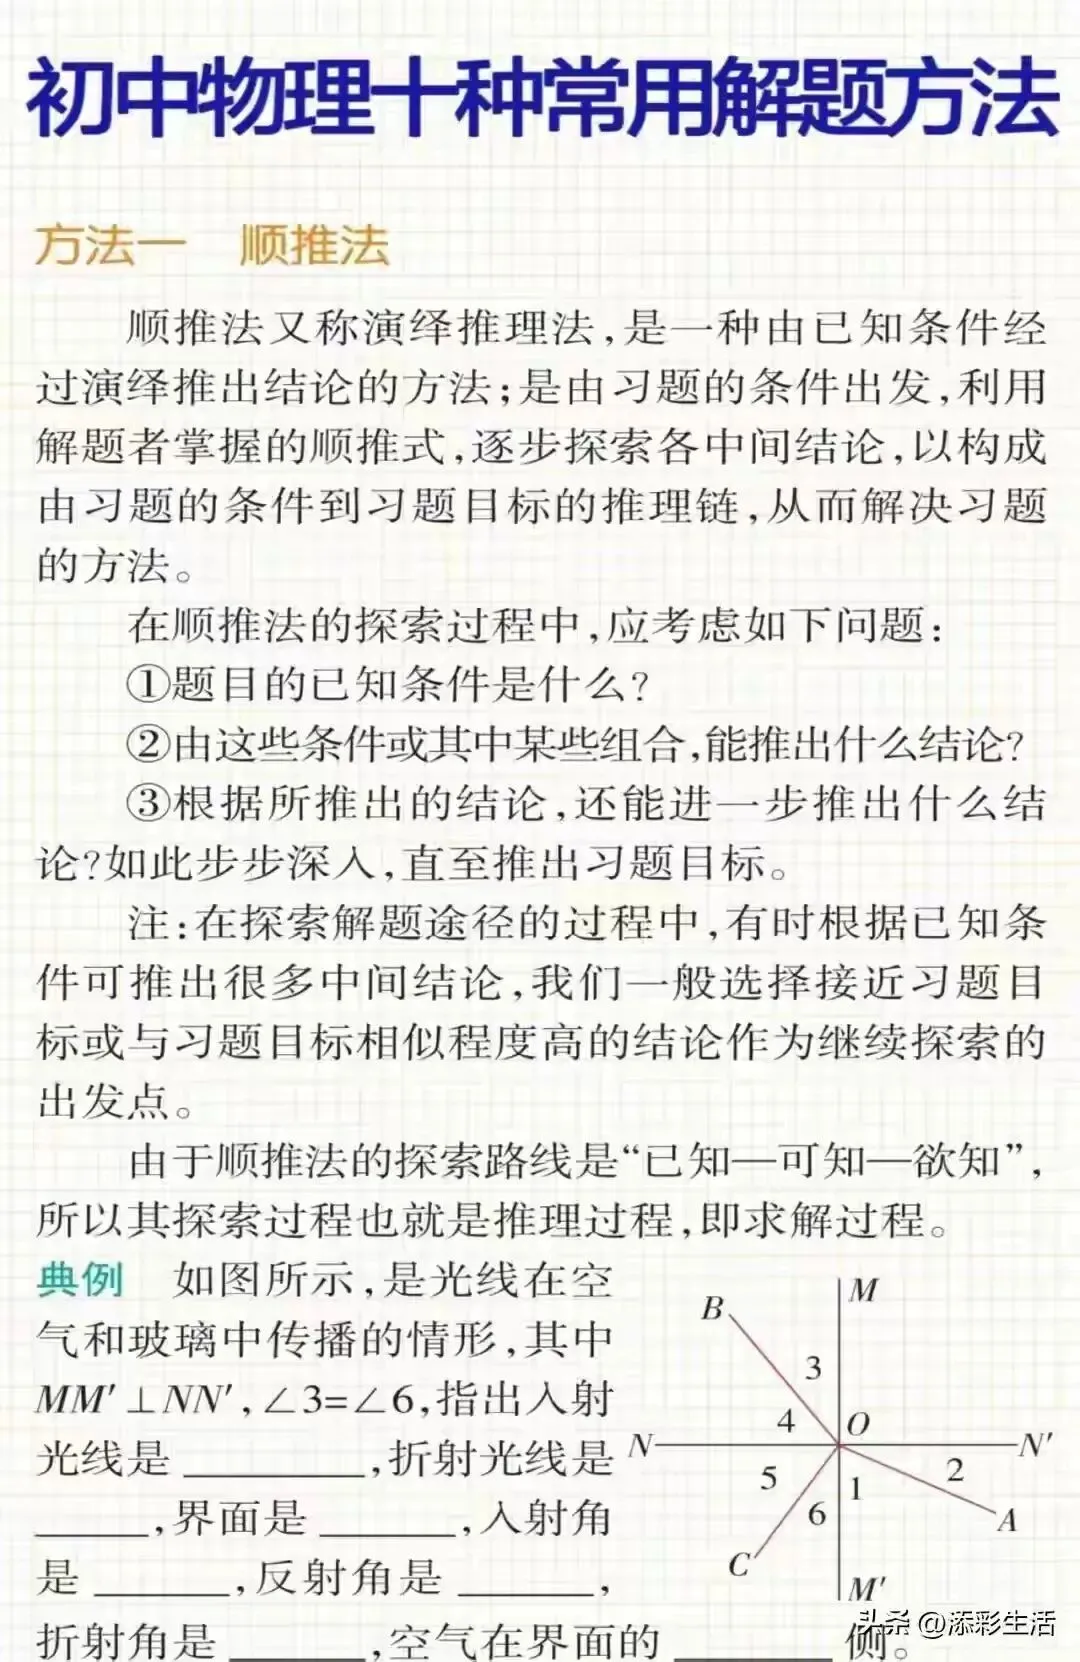 初中物理十种常用解题方法
方法一 顺推法
顺推法又称演绎推理法,是一种由已知条件经
过演绎推出结论的方法;是由习题的条件出发,利用
解题者掌握的顺推式,逐步探索各中间结论,以构成
由习题的条件到习题目标的推理链,从而解决习题
的方法。
在顺推法的探索过程中,应考虑如下问题:
①题目的已知条件是什么?
②由这些条件或其中某些组合,能推出什么结论?
③根据所推出的结论,还能进一步推出什么结
论?如此步步深入,直至推出习题目标。
注:在探索解题途径的过程中,有时根据已知条
件可推出很多中间结论,我们一般选择接近习题目
标或与习题目标相似程度高的结论作为继续探索的
出发点。
由于顺推法的探索路线是“已知—可知—欲知”,
所以其探索过程也就是推理过程,即求解过程。
典例 如图所示,是光线在空
气和玻璃中传播的情形,其中
MM′⊥NN′,∠3=∠6,指出入射
光线是 ________,折射光线是
_____,界面是 ______,入射角
是 ______,反射角是 ______,
折射角是 ______,空气在界面的 _______ 侧。
M
B
3
4
O
N
N′
5
2
1
6
A
C
M′
头条 @添彩生活